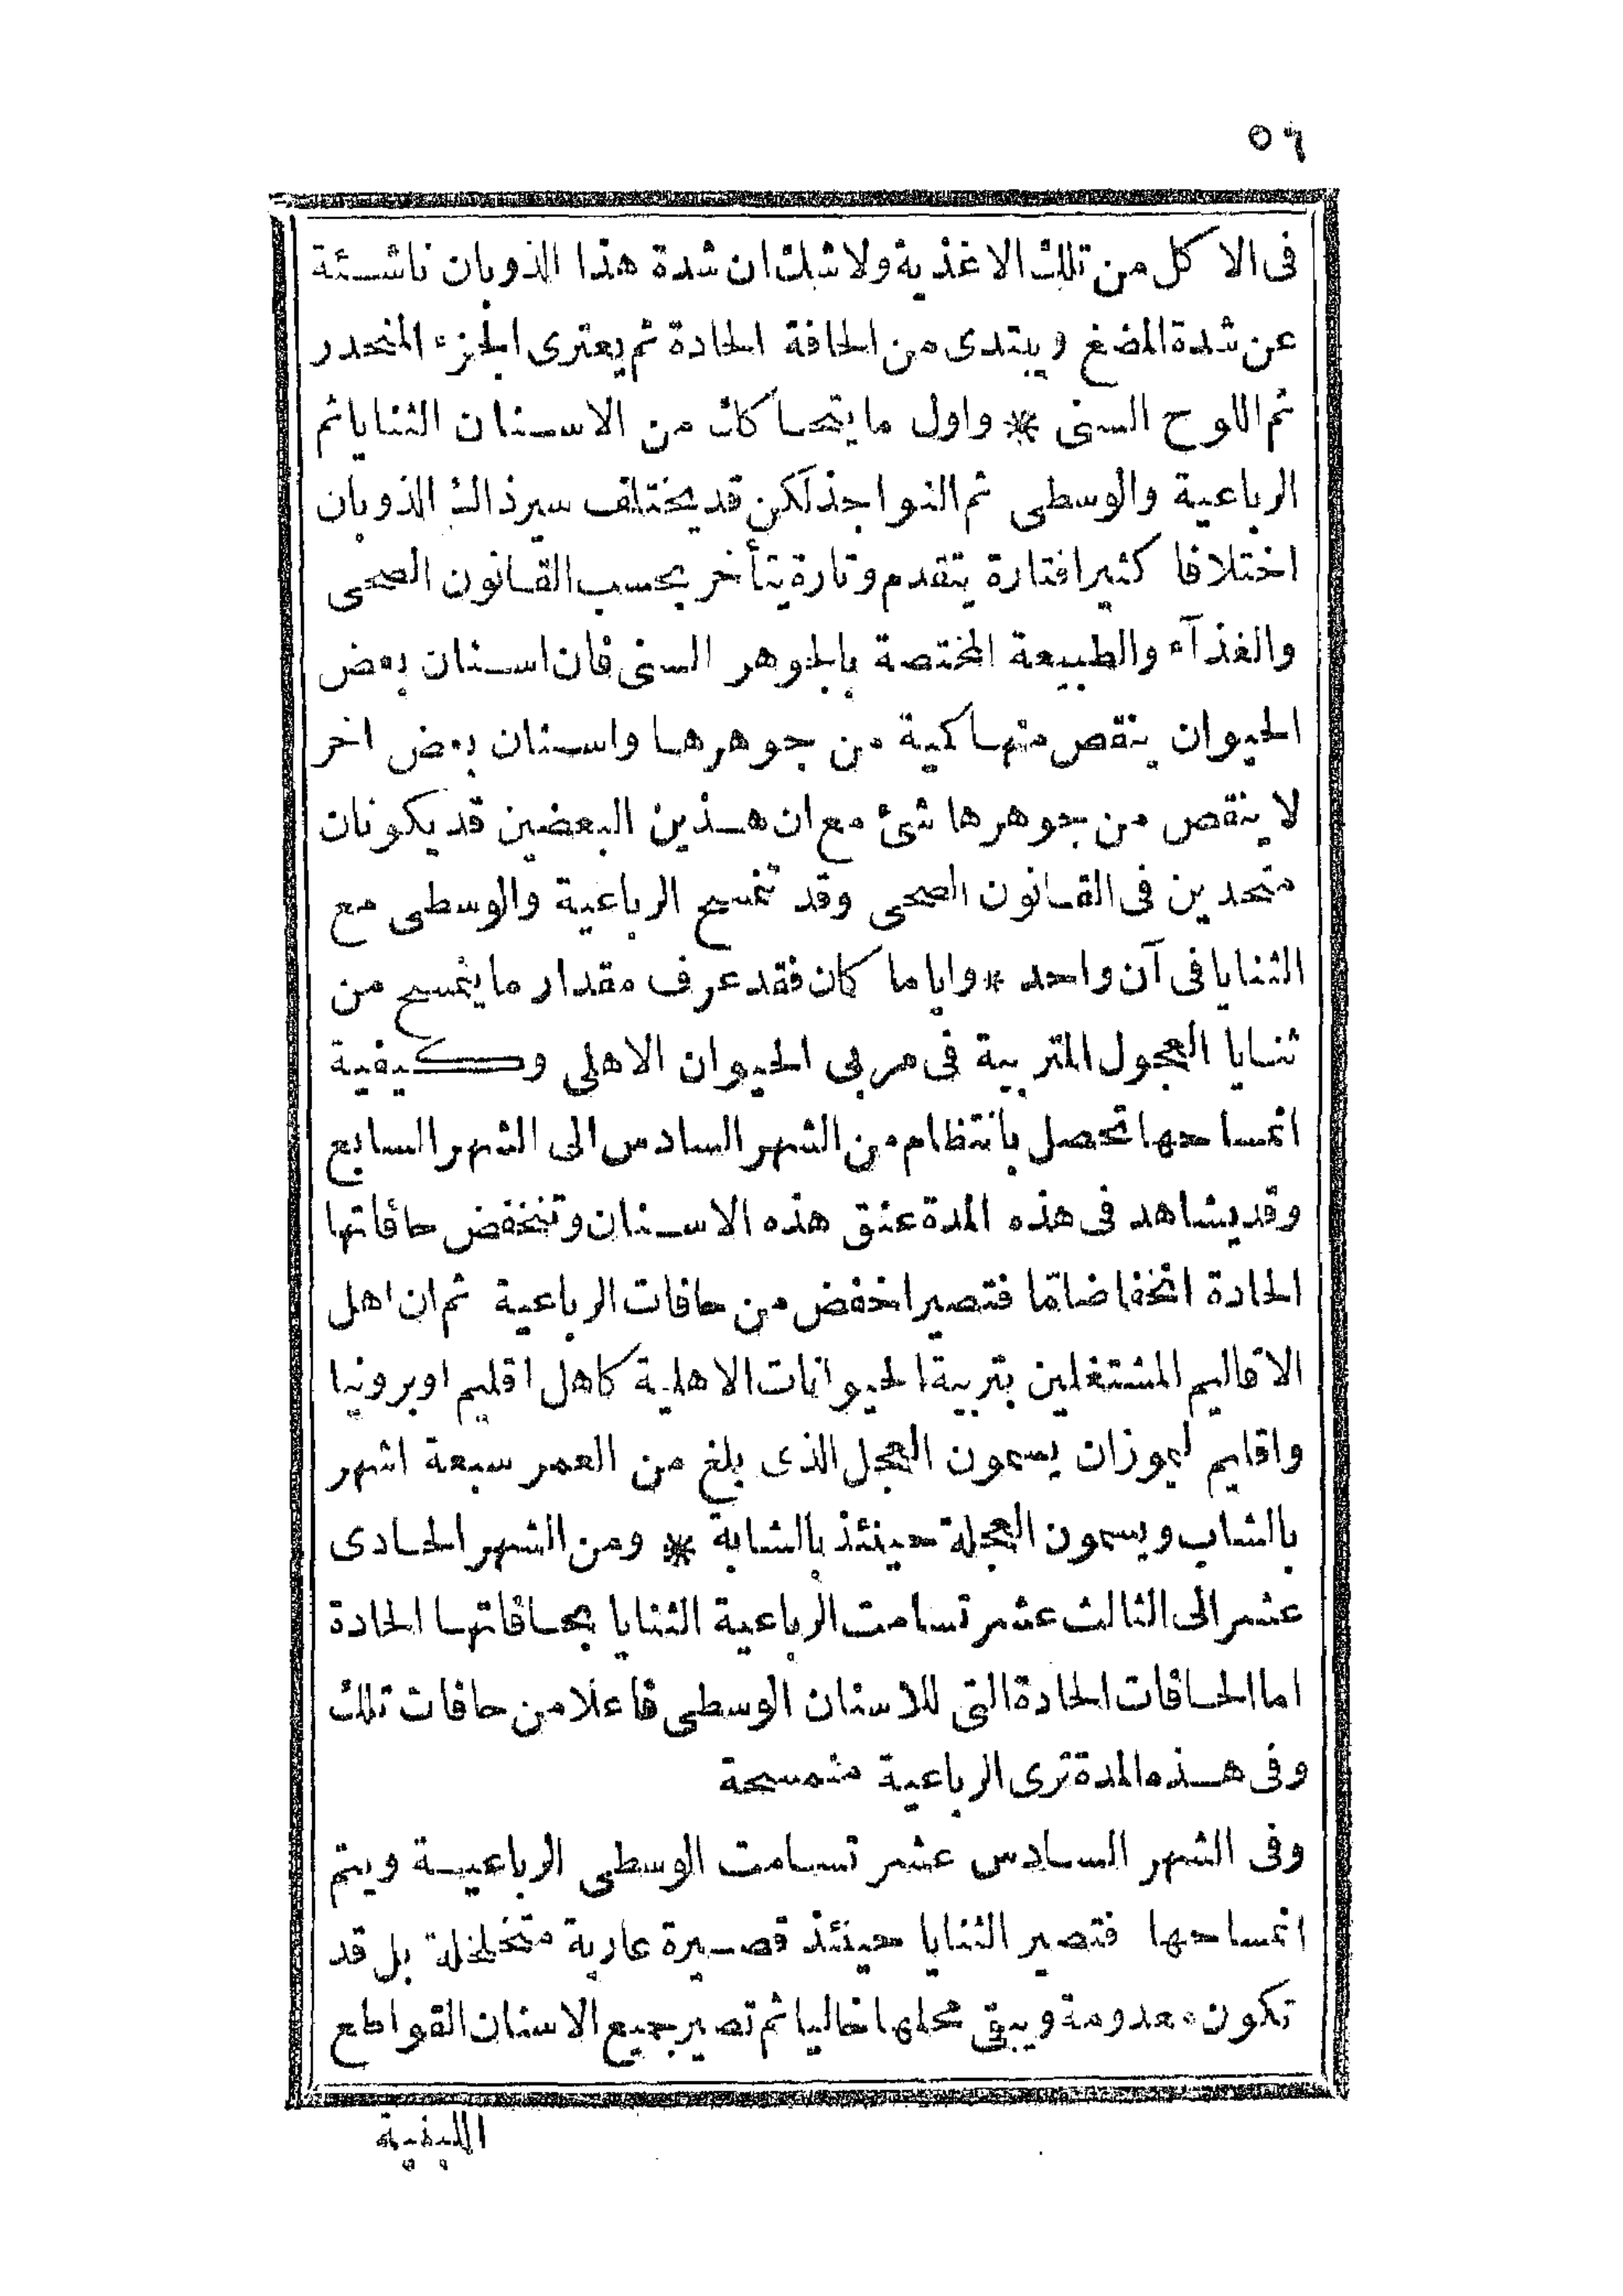 ٥٦
فى الاكل من تلك الاغذية ولاشك ان شدة هذا الذوبان ناشئة
عن شدة المضغ ويبتدى من الحافة الحادة ثم يعترى الجزء المنحدر
ثم اللوح السنى * واول ما يتحاكك من الاسنان الثنايا ثم
الرباعية والوسطى ثم النواجذ لكن قد يختلف سير ذالك الذوبان
اختلافا كثيرا فتارة يتقدم وتارة يتأخر بحسب القانون الصحى
والغذآء والطبيعة المختصة بالجوهر السنى فان اسنان بعض
الحيوان ينقص منها كمية من جوهرها واسنان بعض اخر
لا ينقص من جوهرها شئ مع ان هذين البعضين قد يكونان
متحدين فى القانون الصحى وقد تنمسح الرباعية والوسطى مع
الثنايا فى آن واحد * وايا ما كان فقد عرف مقدار ما ينمسح من
ثنايا العجول المتربية فى مربى الحيوان الاهلى وكيفية
انمساحها تحصل بانتظام من الشهر السادس الى الشهر السابع
وقد يشاهد فى هذه المدة عنق هذه الاسنان وتنخفض حافاتها
الحادة انخفاضا مّا فتصير اخفض من حافات الرباعية ثم ان اهل
الاقاليم المشتغلين بتربية الحيوانات الاهلية كاهل اقليم اوبرونيا
واقليم ليموزان يسمون العجل الذى بلغ من العمر سبعة اشهر
بالشاب ويسمون العجلة حينئذ بالشابة * ومن الشهر الحادى
عشر الى الثالث عشر تسامت الرباعية الثنايا بحافاتها الحادة
اما الحافات الحادة التى للاسنان الوسطى فاعلا من حافات تلك
وفى هذه المدة ترى الرباعية منمسحة
وفى الشهر السادس عشر تسامت الوسطى الرباعية ويتم
انمساحها فتصير الثنايا حينئذ قصيرة عارية متخلخلة بل قد
تكون معدومة ويبقى محلها خاليا ثم تصير جميع الاسنان القواطع
اللبنية